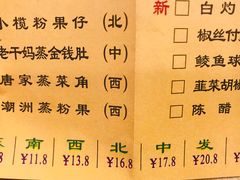 小榄粉果仔 (北)
老干妈蒸金钱肚 (中)
唐家蒸菜角 (西)
潮洲蒸粉果 (西)
新 □ 白灼
□ 椒丝
□ 鲮鱼球
□ 韭菜胡椒
□ 陈醋
南 西 北 中 发
¥11.8 ¥13.8 ¥16.8 ¥17.8 ¥20.8